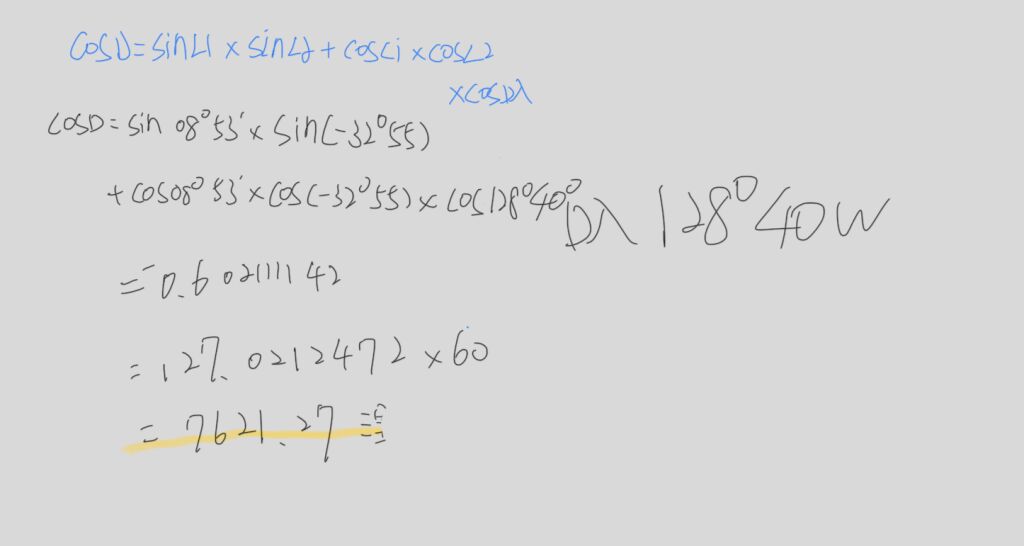 cosD=sinL1 x sinL2 + cosLi x cosL2
xcosDλ
cosD=sin 08°53' x sin(-32°55)
+ cos08°53' x cos(-32°55) x cos128°40°
Dλ 128°40W
=-0.602111142
=127.0212472 x 60
=7621.27